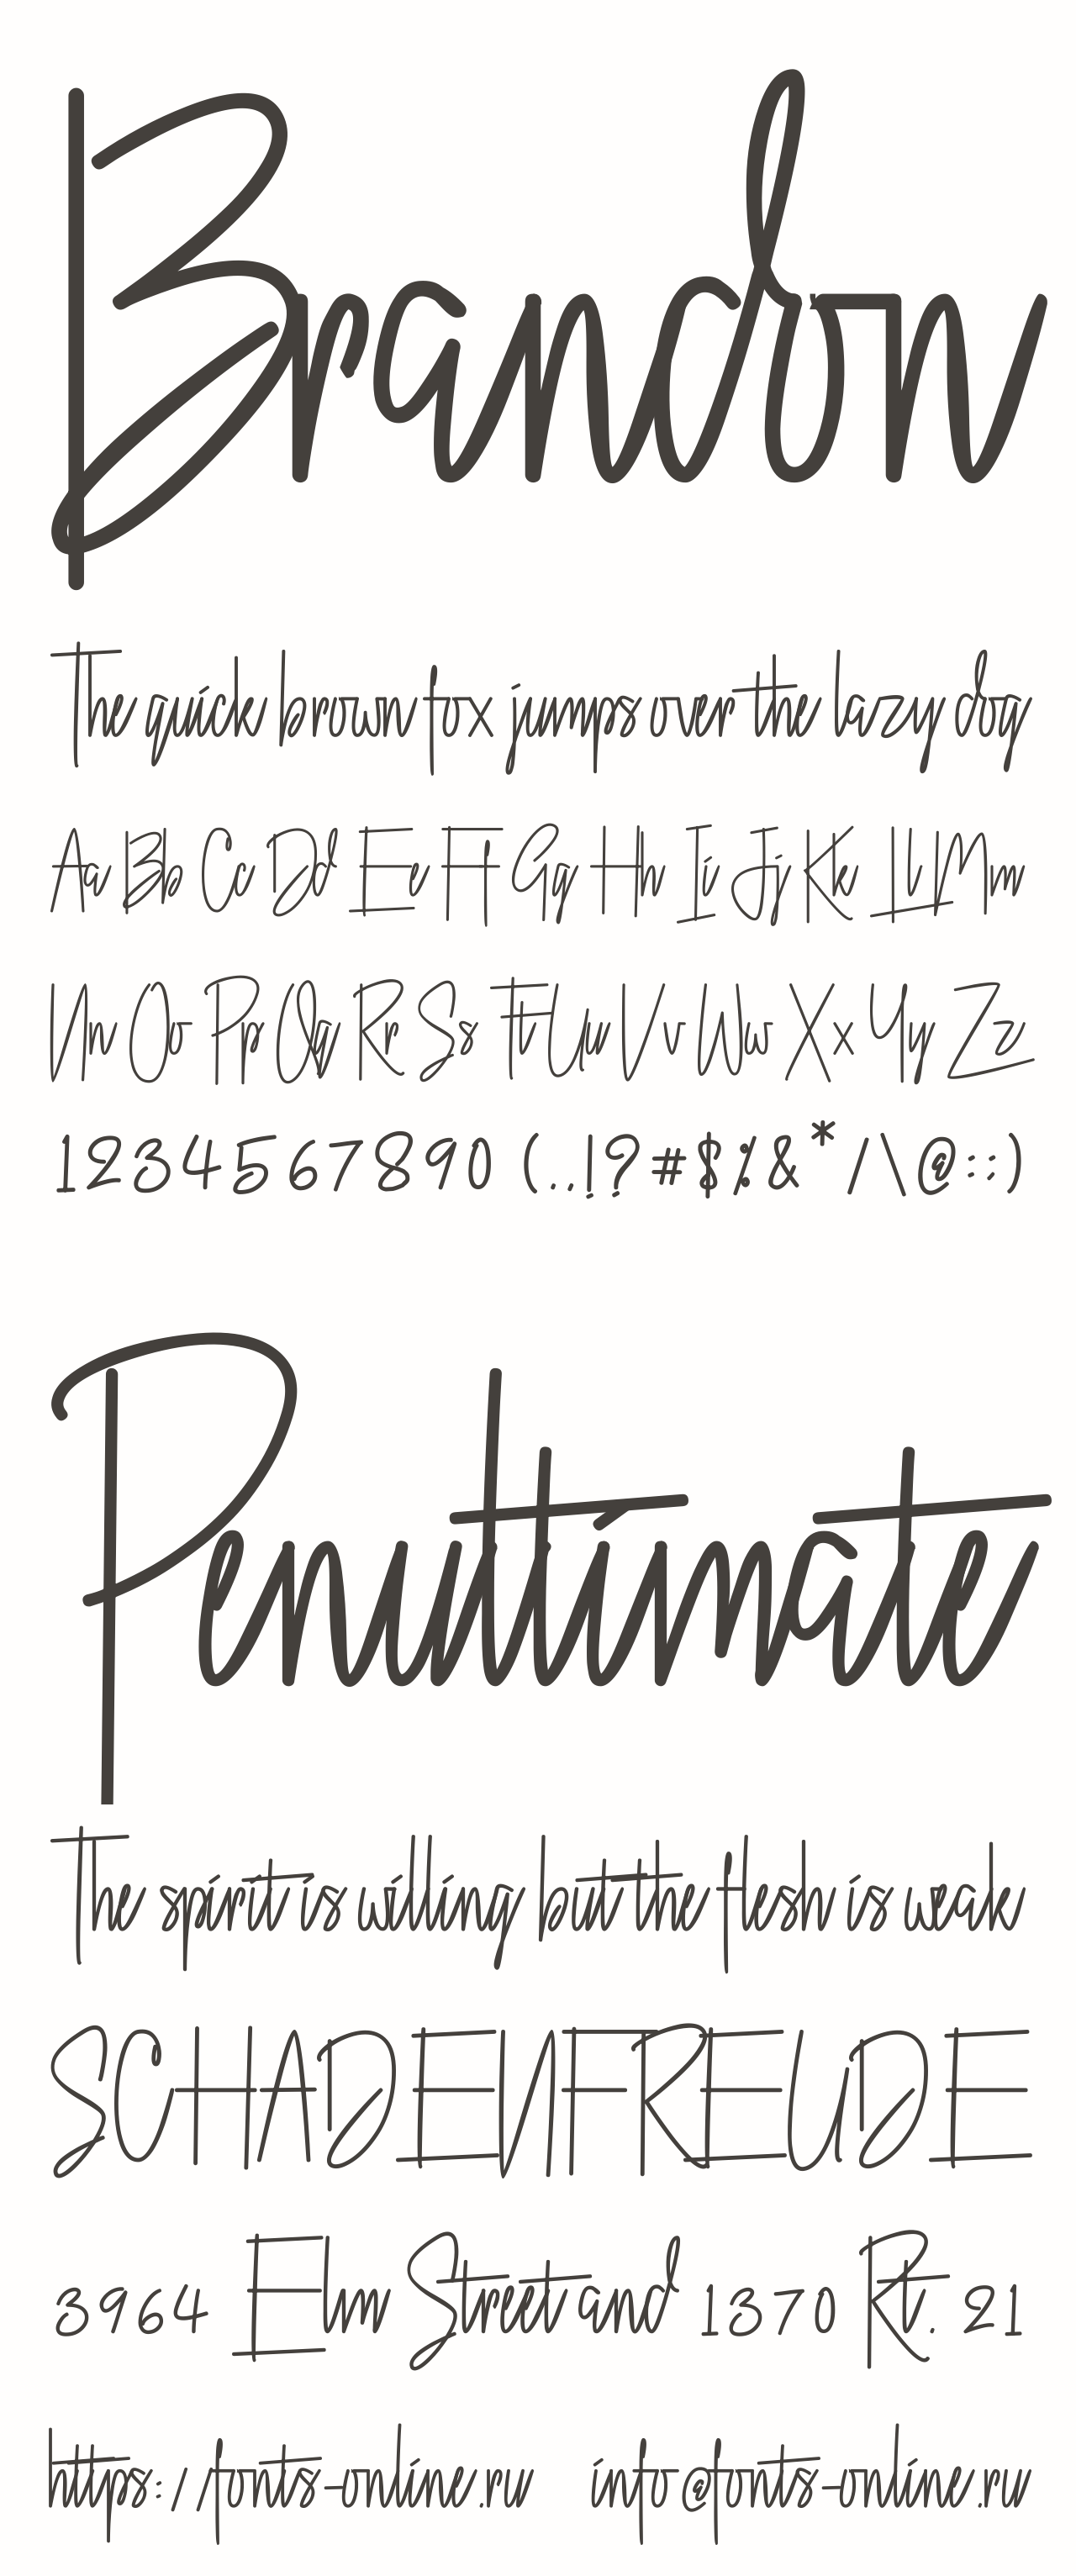 Brandon
The quick brown fox jumps over the lazy dog
Aa Bb Cc Dd Ee Ff Gg Hh Ii Jj Kk Ll Mm
Nn Oo Pp Qq Rr Ss Tt Uu Vv Ww Xx Yy Zz
1234567890 (..!?#$%&*/\@::)
Penultimate
The spirit is willing but the flesh is weak
SCHADENFREUDE
3964 Elm Street and 1370 Rt. 21
https://fonts-online.ru info@fonts-online.ru